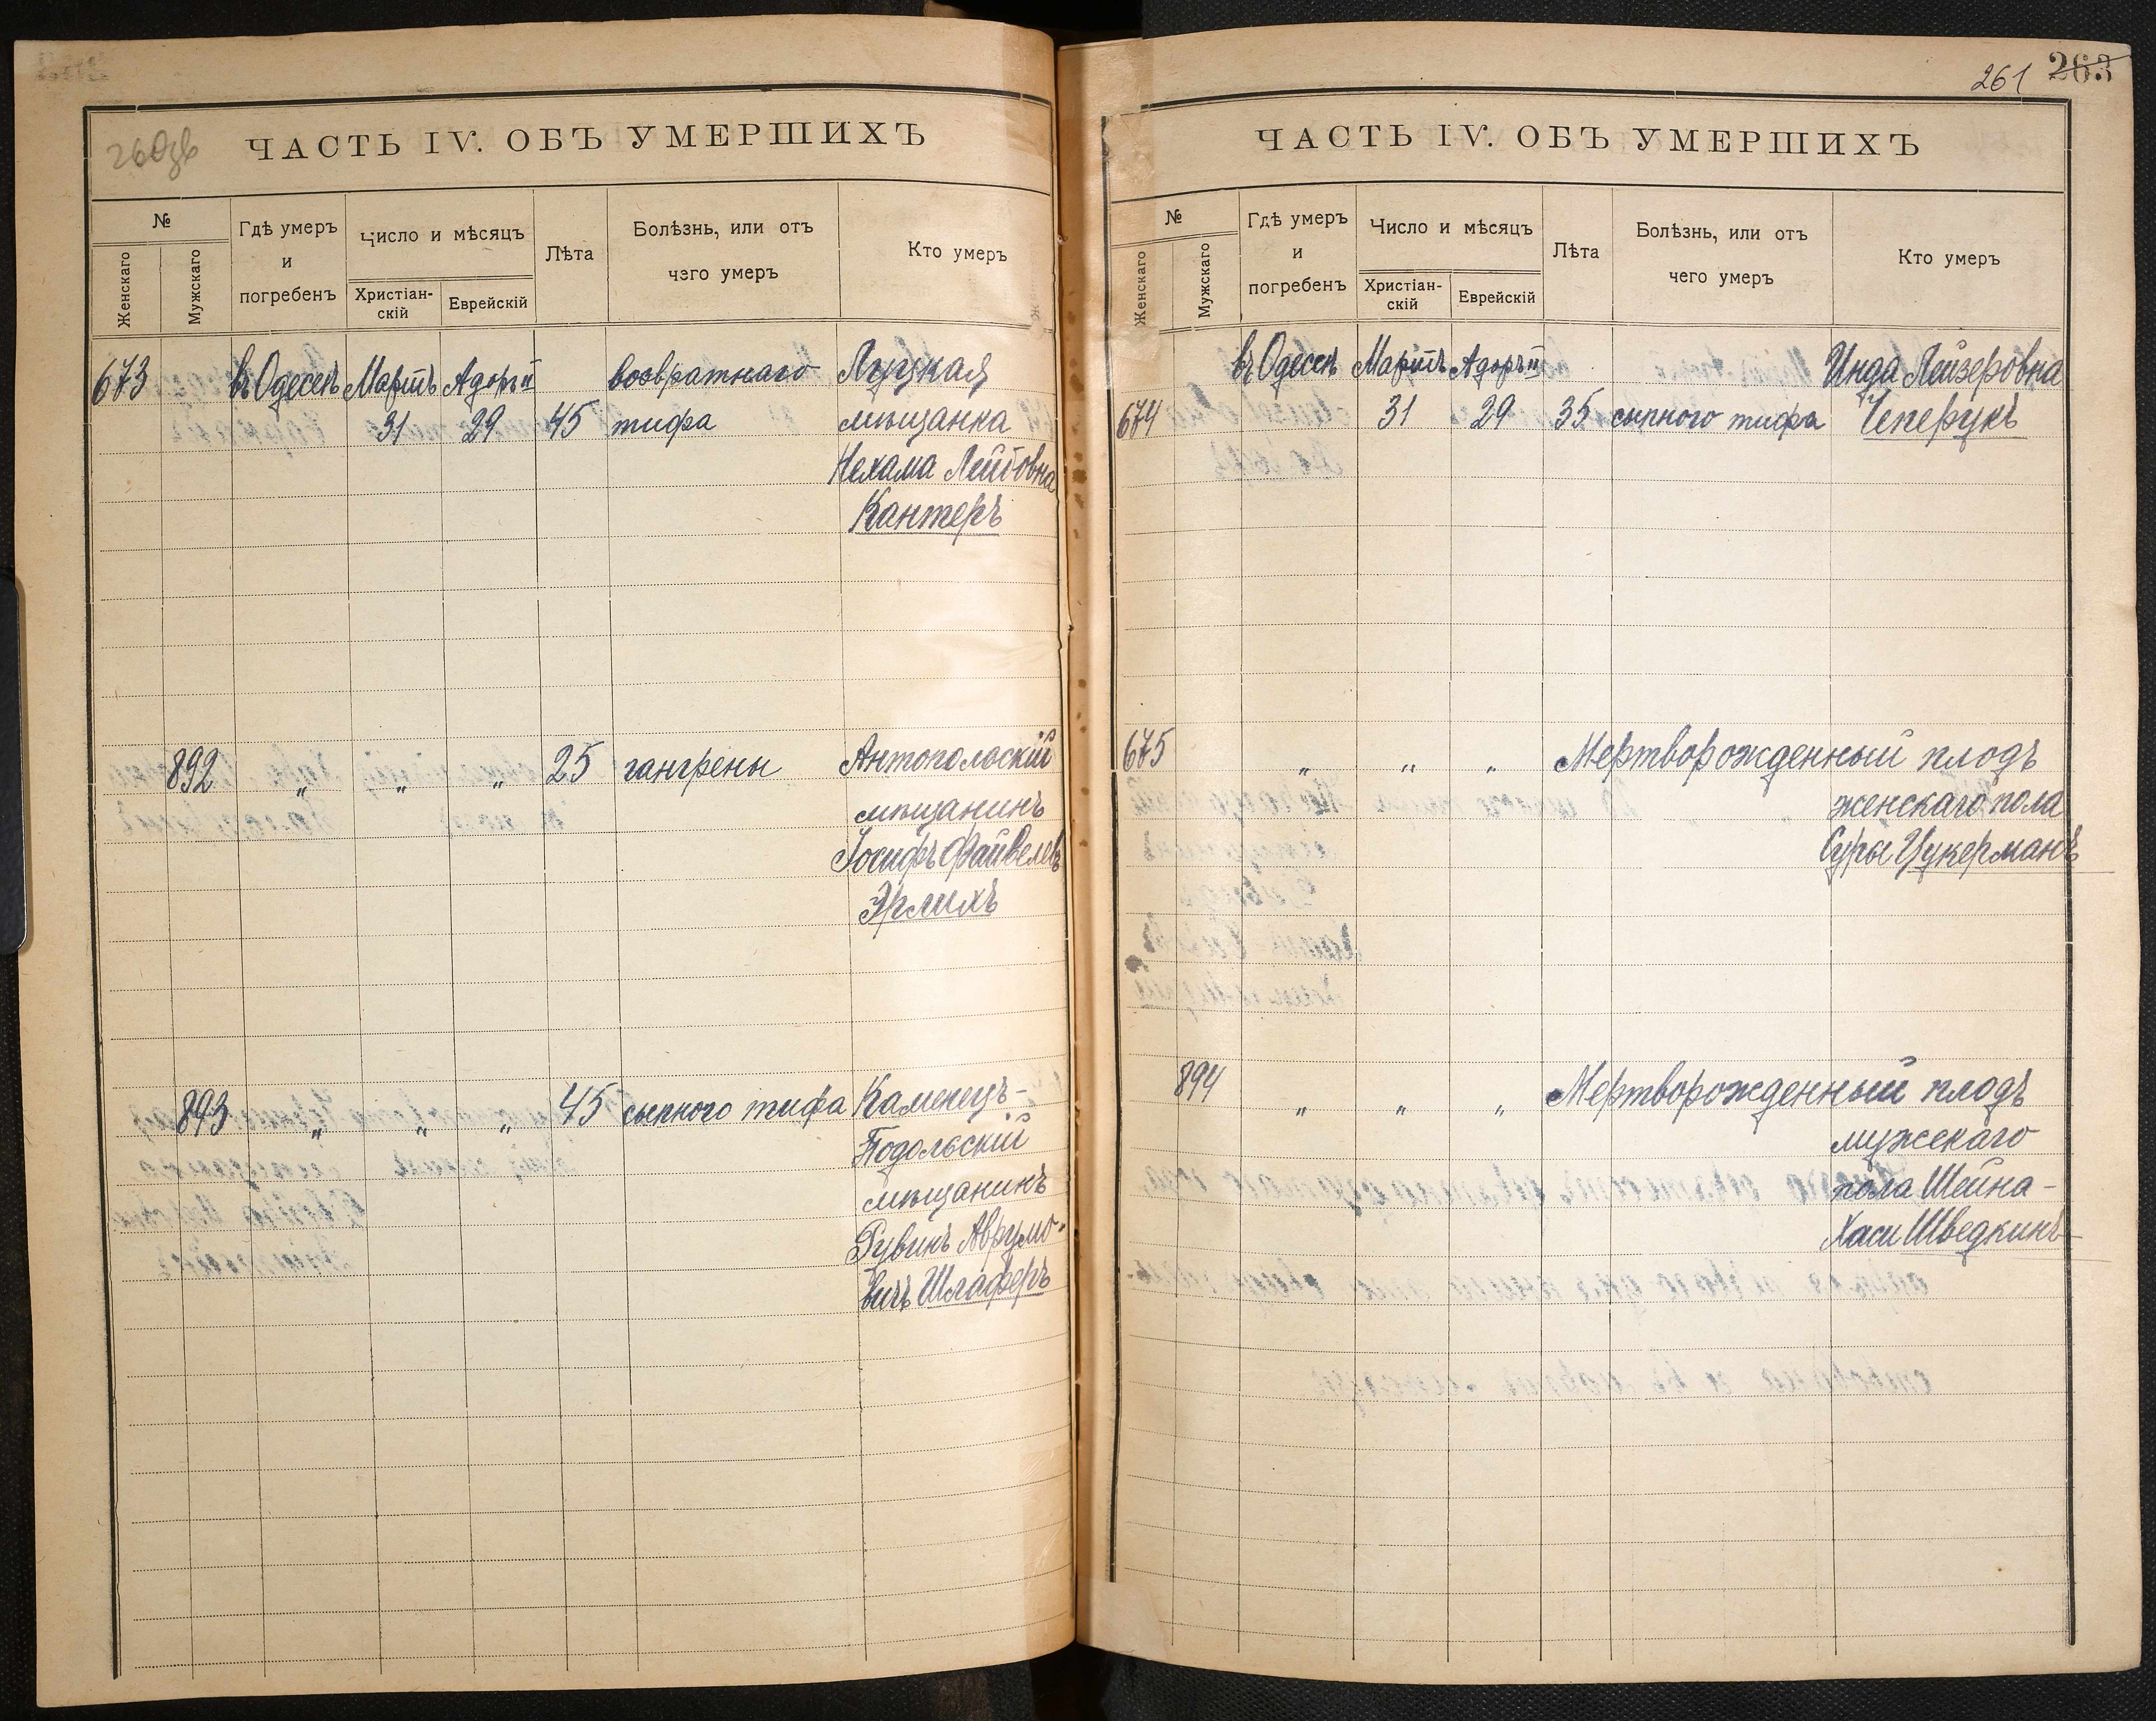 260зв
ЧАСТЬ IV. ОБЪ УМЕРШИХЪ
№
Женскаго
Мужскаго
Гдѣ умеръ
и
погребенъ
Число и мѣсяцъ
Христіан-
скій
Еврейскій
Лѣта
Болѣзнь, или отъ
чего умеръ
Кто умеръ
673 въ Одессѣ Мартъ Адоръ II возвратнаго Луцкая
31 29 45 тифа мѣщанка
Нехама Лейбовна
Кантеръ
892 „ „ „ 25 гангрены Антопольскій
мѣщанинъ
Іосифъ Файвелевъ
Эрлихъ
893 „ „ „ 45 сыпного тифа Каменецъ-
Подольскій
мѣщанинъ
Рувинъ Аврумо-
вичъ Шлаферъ
261 263
ЧАСТЬ IV. ОБЪ УМЕРШИХЪ
№
Женскаго
Мужскаго
Гдѣ умеръ
и
погребенъ
Число и мѣсяцъ
Христіан-
скій
Еврейскій
Лѣта
Болѣзнь, или отъ
чего умеръ
Кто умеръ
въ Одессѣ Мартъ Адоръ II Инда Лейзеровна
674 31 29 35 сыпного тифа Чеперукъ
675 „ „ „ Мертворожденный плодъ
женскаго пола
Суры Цукерманъ
894 „ „ „ Мертворожденный плодъ
мужскаго
пола Шейна-
Хаси Шведкинъ